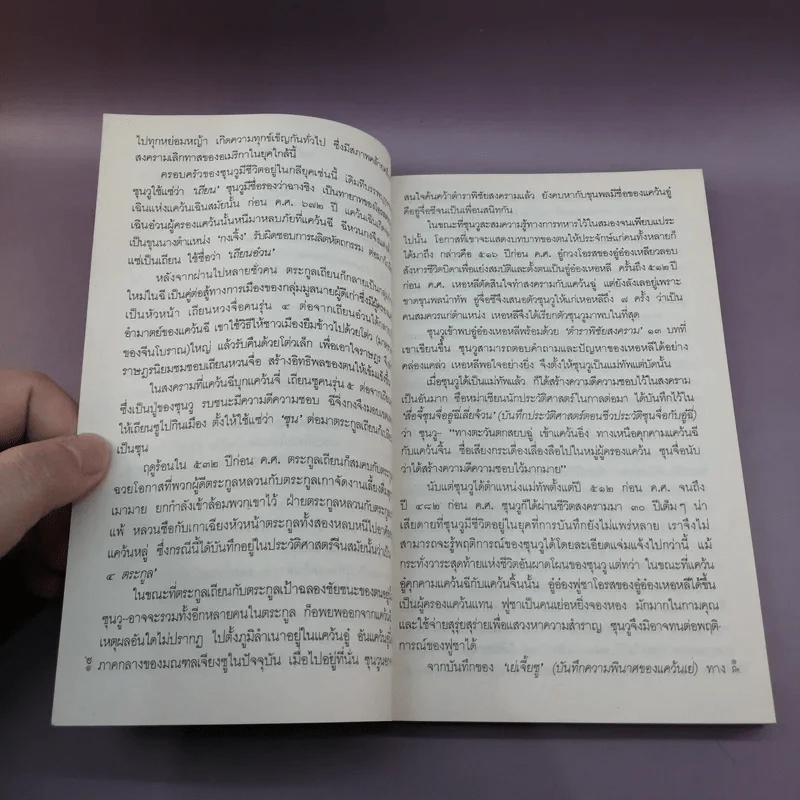 ไปทุกหย่อมหญ้า เกิดความทุกข์เข็ญกันทั่วไป ซึ่งมีสภาพคล้าย
สงครามเลิกทาสของอเมริกาในยุคใกล้นี้
ครอบครัวของซุนวูมีชีวิตอยู่ในกลียุคเช่นนี้ เดิมที
ซุนวูใช้แซ่ว่า 'เถียน' ซุนวูมีชื่อรองว่าฉางชิง เป็นทายาทของ
เฉินแห่งแคว้นเฉินสมัยนั้น ก่อน ค.ศ. ๖๗๒ ปี แคว้นเฉินเกิด
เฉินอ๋วนผู้ครองแคว้นนั้นหนีมาหลบภัยที่แคว้นฉี ฉีหวนกงจึง
เป็นขุนนางตำแหน่ง 'กงเจิ้ง' รับผิดชอบการผลิตหัตถกรรม ต่อมา
แซ่เป็นเถียน ใช้ชื่อว่า 'เถียนอ๋วน'
หลังจากผ่านไปหลายชั่วคน ตระกูลเถียนก็กลายเป็น
ใหม่ในฉี เป็นคู่ต่อสู้ทางการเมืองของกลุ่มมูลนายผู้ดีเก่าซึ่งมี
เป็นหัวหน้า เถียนหวงจื่อคนรุ่น ๔ ต่อจากเถียนอ๋วนได้
อำมาตย์ของแคว้นฉี เขาใช้วิธีให้ชาวเมืองยืมข้าวไปด้วยโต่ว
ของจีนโบราณ)ใหญ่ แล้วรับคืนด้วยโต่วเล็ก เพื่อเอาใจราษฎร จึง
ราษฎรนิยมชมชอบเถียนหวนจื่อ สร้างอิทธิพลของตนให้เข้มแข็ง
ในสงครามที่แคว้นฉีบุกแคว้นจวี่ เถียนซูคนรุ่น ๕ ต่อจาก
ซึ่งเป็นปู่ของซุนวู รบชนะมีความดีความชอบ ฉีจิ่งกงจึง
ให้เถียนซูไปกินเมือง ตั้งให้ใช้แซ่ว่า 'ซุน' ต่อมาตระกูลเถียน
เป็นซุน
ฤดูร้อนใน ๕๓๒ ปีก่อน ค.ศ. ตระกูลเถียนก็สมคบกับ
ฉวยโอกาสที่พวกผู้ดีตระกูลหลวนกับตระกูลเกาจัดงานเลี้ยง
เมามาย ยกกำลังเข้าล้อมพวกเขาไว้ ฝ่ายตระกูลหลวนกับ
แพ้ หลวนซือกับเกาเฉียงหัวหน้าตระกูลทั้งสองหลบหนีไป
แคว้นหลู่ ซึ่งกรณีนี้ได้บันทึกอยู่ในประวัติศาสตร์จีนสมัยนั้นว่า
๔ ตระกูล'
ในขณะที่ตระกูลเถียนกับตระกูลเป้าฉลองชัยชนะของตนอยู่
ซุนวู-อาจจะรวมทั้งอีกหลายคนในตระกูล ก็อพยพออกจากแคว้น
เหตุผลอันใดไม่ปรากฏ ไปตั้งภูมิลำเนาอยู่ในแคว้นอู๋ อันแคว้นอู๋
ภาคกลางของมณฑลเจียงซูในปัจจุบัน เมื่อไปอยู่ที่นั่น ซุนวู
สนใจค้นคว้าตำราพิชัยสงครามแล้ว ยังคบหากับขุนพลมีชื่อของแคว้นอู๋
คืออู่จื่อซีจนเป็นเพื่อนสนิทกัน
ในขณะที่ซุนวูสะสมความรู้ทางการทหารไว้ในสมองจนเพียบแประ
ไปนั้น โอกาสที่เขาจะแสดงบทบาทของตนให้ประจักษ์แก่คนทั้งหลายก็
ได้มาถึง กล่าวคือ ๕๑๖ ปีก่อน ค.ศ. อู๋กวงโอรสของอู๋อ๋องเหลียวลอบ
สังหารชีวิตบิดาเพื่อแย่งสมบัติและตั้งตนเป็นอู๋อ๋องเหอหลี ครั้นถึง ๕๑๒ ปี
ก่อน ค.ศ. เหอหลีตัดสินใจทำสงครามกับแคว้นฉู่ แต่ยังลังเลอยู่เพราะ
ขาดขุนพลนำทัพ อู่จื่อซีจึงเสนอตัวซุนวูให้แก่เหอหลีถึง ๗ ครั้ง ว่าเป็น
คนสมควรแก่ตำแหน่ง เหอหลีจึงได้เรียกตัวซุนวูมาพบในที่สุด
ซุนวูเข้าพบอู๋อ๋องเหอหลีพร้อมด้วย 'ตำราพิชัยสงคราม' ๑๓ บทที่
เขาเขียนขึ้น ซุนวูสามารถตอบคำถามและปัญหาของเหอหลีได้อย่าง
คล่องแคล่ว เหอหลีพอใจอย่างยิ่ง จึงตั้งให้ซุนวูเป็นแม่ทัพแต่บัดนั้น
เมื่อซุนวูได้เป็นแม่ทัพแล้ว ก็ได้สร้างความดีความชอบไว้ในสงคราม
เป็นอันมาก ซือหม่าเชียนนักประวัติศาสตร์ในกาลต่อมา ได้บันทึกไว้ใน
'สื่อจี้ซุนจื่ออู๋ฉีเลี่ยจ้วน' (บันทึกประวัติศาสตร์ตอนชีวประวัติซุนจื่อกับอู๋ฉี)
ว่า ซุนวู- "ทางตะวันตกสยบฉู่ เข้าแคว้นอิ่ง ทางเหนือคุกคามแคว้นฉี
กับแคว้นจิ้น ชื่อเสียงกระเดื่องเลื่องลือไปในหมู่ผู้ครองแคว้น ซุนจื่อนับ
ว่าได้สร้างความดีความชอบไว้มากมาย"
นับแต่ซุนวูได้ตำแหน่งแม่ทัพตั้งแต่ปี ๕๑๒ ก่อน ค.ศ. จนถึง
ปี ๔๘๒ ก่อน ค.ศ. ซุนวูก็ได้ผ่านชีวิตสงครามมา ๓๐ ปีเต็มๆ น่า
เสียดายที่ซุนวูมีชีวิตอยู่ในยุคที่การบันทึกยังไม่แพร่หลาย เราจึงไม่
สามารถจะรู้พฤติการณ์ของซุนวูได้โดยละเอียดแจ่มแจ้งไปกว่านี้ แม้
กระทั่งวาระสุดท้ายแห่งชีวิตอันผาดโผนของซุนวู แต่ทว่า ในขณะที่แคว้น
อู๋คุกคามแคว้นฉีกับแคว้นจิ้นนั้น อู๋อ๋องฟูซาโอรสของอู๋อ๋องเหอหลีได้ขึ้น
เป็นผู้ครองแคว้นแทน ฟูซาเป็นคนเย่อหยิ่งจองหอง มักมากในกามคุณ
และใช้จ่ายสุรุ่ยสุร่ายเพื่อแสวงหาความสำราญ ซุนวูจึงมิอาจทนต่อพฤติ-
การณ์ของฟูซาได้
จากบันทึกของ 'เย่เจี้ยซู' (บันทึกความพินาศของแคว้นเย่) ทาง